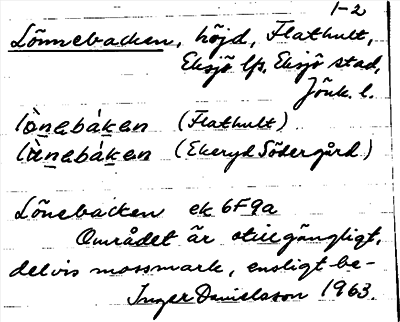 1-2
Lönnebacken, höjd, Flathult,
Eksjö lfs, Eksjö stad,
Jönk. l.
lò̱nebák̲en (Flathult)
lǜnebák̲en (Ekeryd Södergård)
Lönebacken ek 6F9a
Området är otillgängligt,
delvis mossmark, ensligt be-
Inger Danielsson 1963.